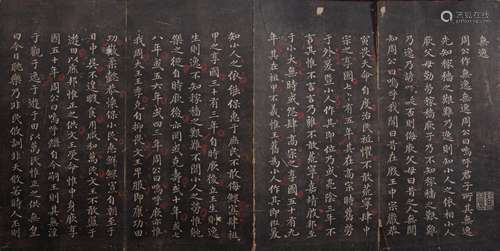 無逸
周公作無逸周公曰嗚呼君子所其無逸
先知稼穡之艱難乃逸則知小人之依相小人
厥父母勤勞稼穡厥子乃不知稼穡之艱難
乃逸乃諺既誕否則侮厥父母曰昔之人無聞
知周公曰嗚呼我聞曰昔在殷王中宗嚴恭
寅畏天命自度治民祗懼不敢荒寧肆中
宗之享國七十有五年其在高宗時舊勞
于外爰暨小人作其即位乃或亮陰三年不
言其惟不言言乃雍不敢荒寧嘉靖殷邦至
于小大無時或怨肆高宗之享國五十有九
年其在祖甲不義惟王舊為小人作其即位爰
知小人之依能保惠于庶民不敢侮鰥寡肆祖
甲之享國三十有三年自時厥後立王生則逸
生則逸不知稼穡之艱難不聞小人之勞惟耽
樂之從自時厥後亦罔或克壽或十年或七
八年或五六年或四三年周公曰嗚呼厥亦惟
我周太王王季克自抑畏文王卑服即康功田
功徽柔懿恭懷保小民惠鮮鰥寡自朝至于
日中昃不遑暇食用咸和萬民文王不敢盤于
遊田以庶邦惟正之供文王受命惟中身厥享
國五十年周公曰嗚呼繼自今嗣王則其無淫
于觀于逸于遊于田以萬民惟正之供無皇
曰今日耽樂乃非民攸訓非天攸若時人丕則